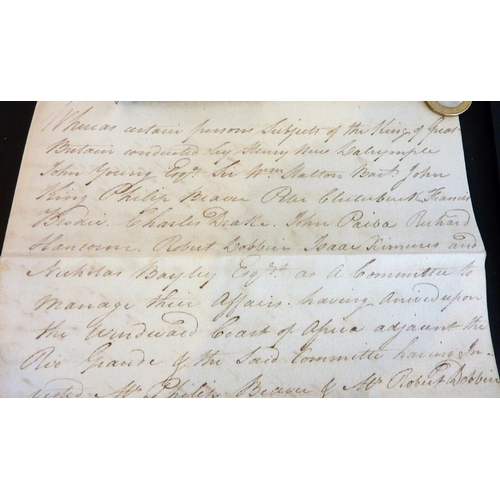 Whereas certain persons Subjects of the King of Great
Britain conducted by Henry Hew Dalrymple
John Young Esqr. Sir Wm Halton Bart. John
King Philip Beaver Peter Clutterbuck Francis
Brodie. Charles Drake. John Paiba Richard
Hancorne. Robert Dobbin Isaac Ximenes and
Nicholas Bayley Esqrs. as a Committee to
manage their Affairs. having Arrived upon
the Windward Coast of Africa adjacent the
Rio Grande & the Said Committee having In-
Mr. Philip Beaver & Mr Robert Dobbin